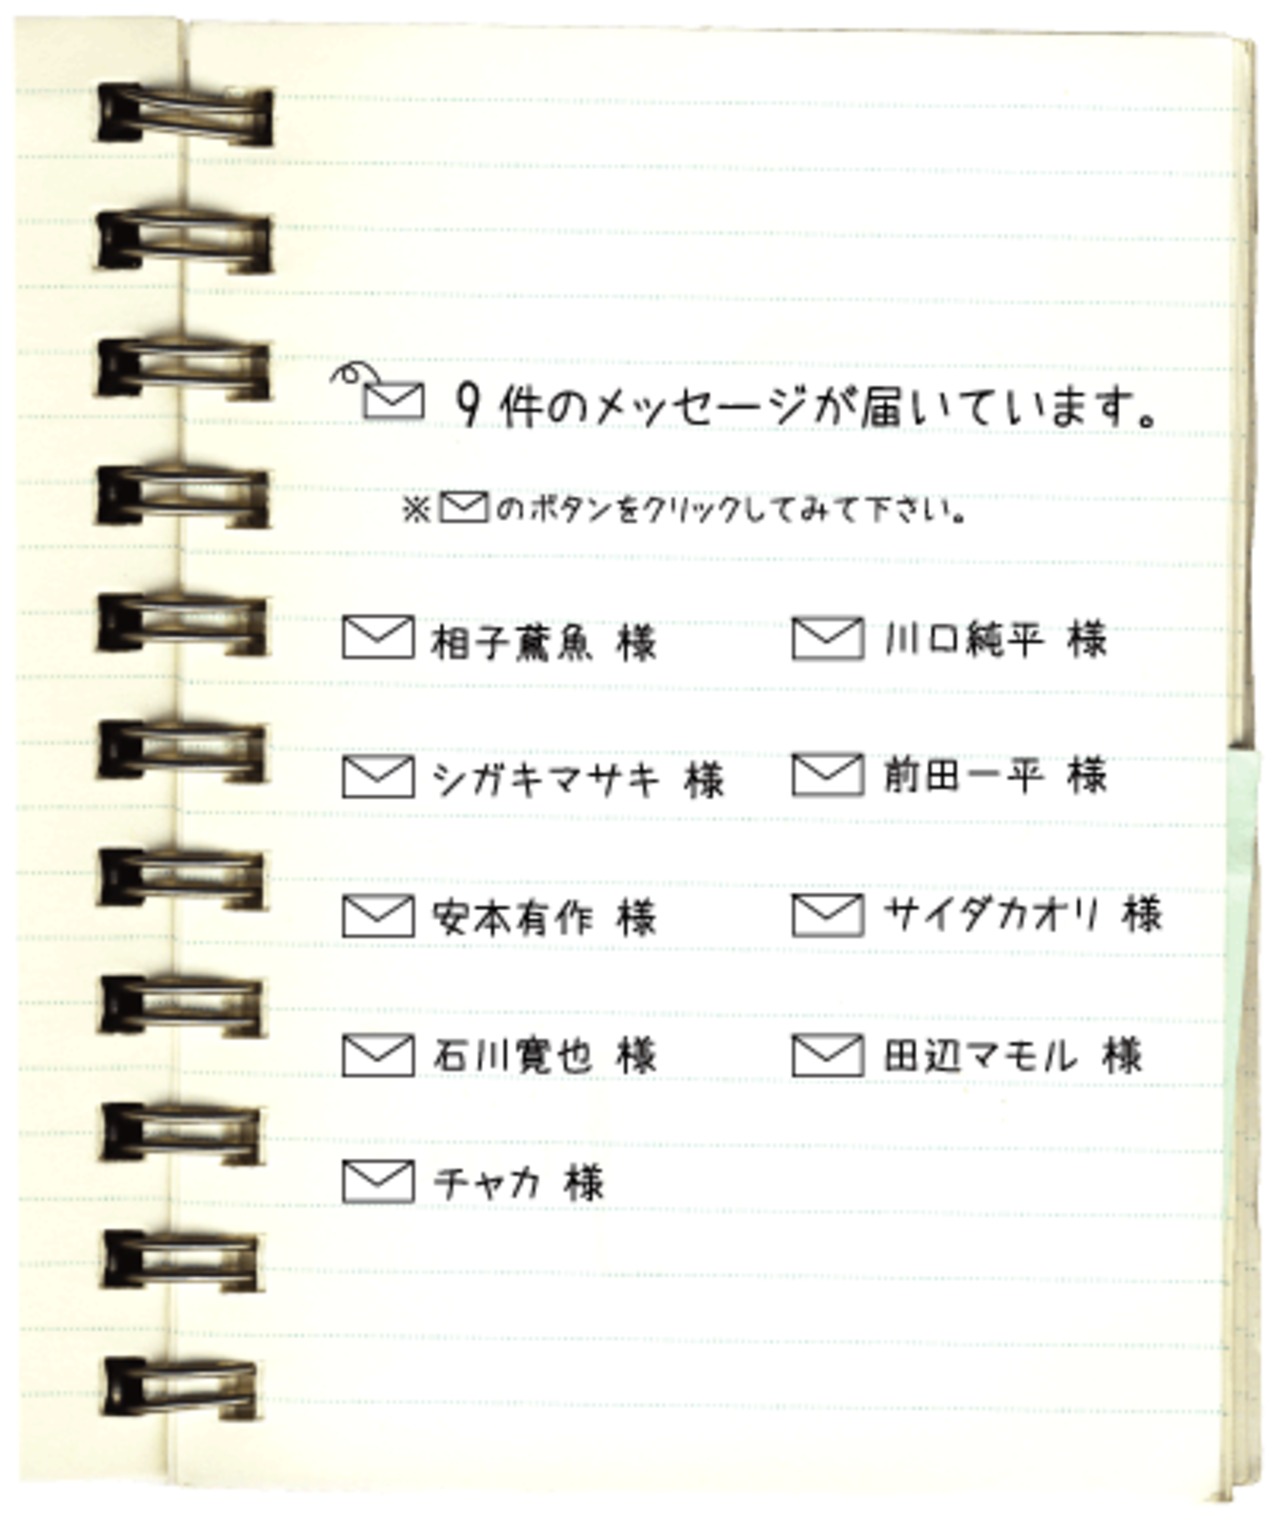 9件のメッセージが届いています。
※のボタンをクリックしてみて下さい。
相子鳶魚 様
川口純平 様
シガキマサキ 様
前田一平 様
安本有作 様
サイダカオリ 様
石川寛也 様
田辺マモル 様
チャカ 様